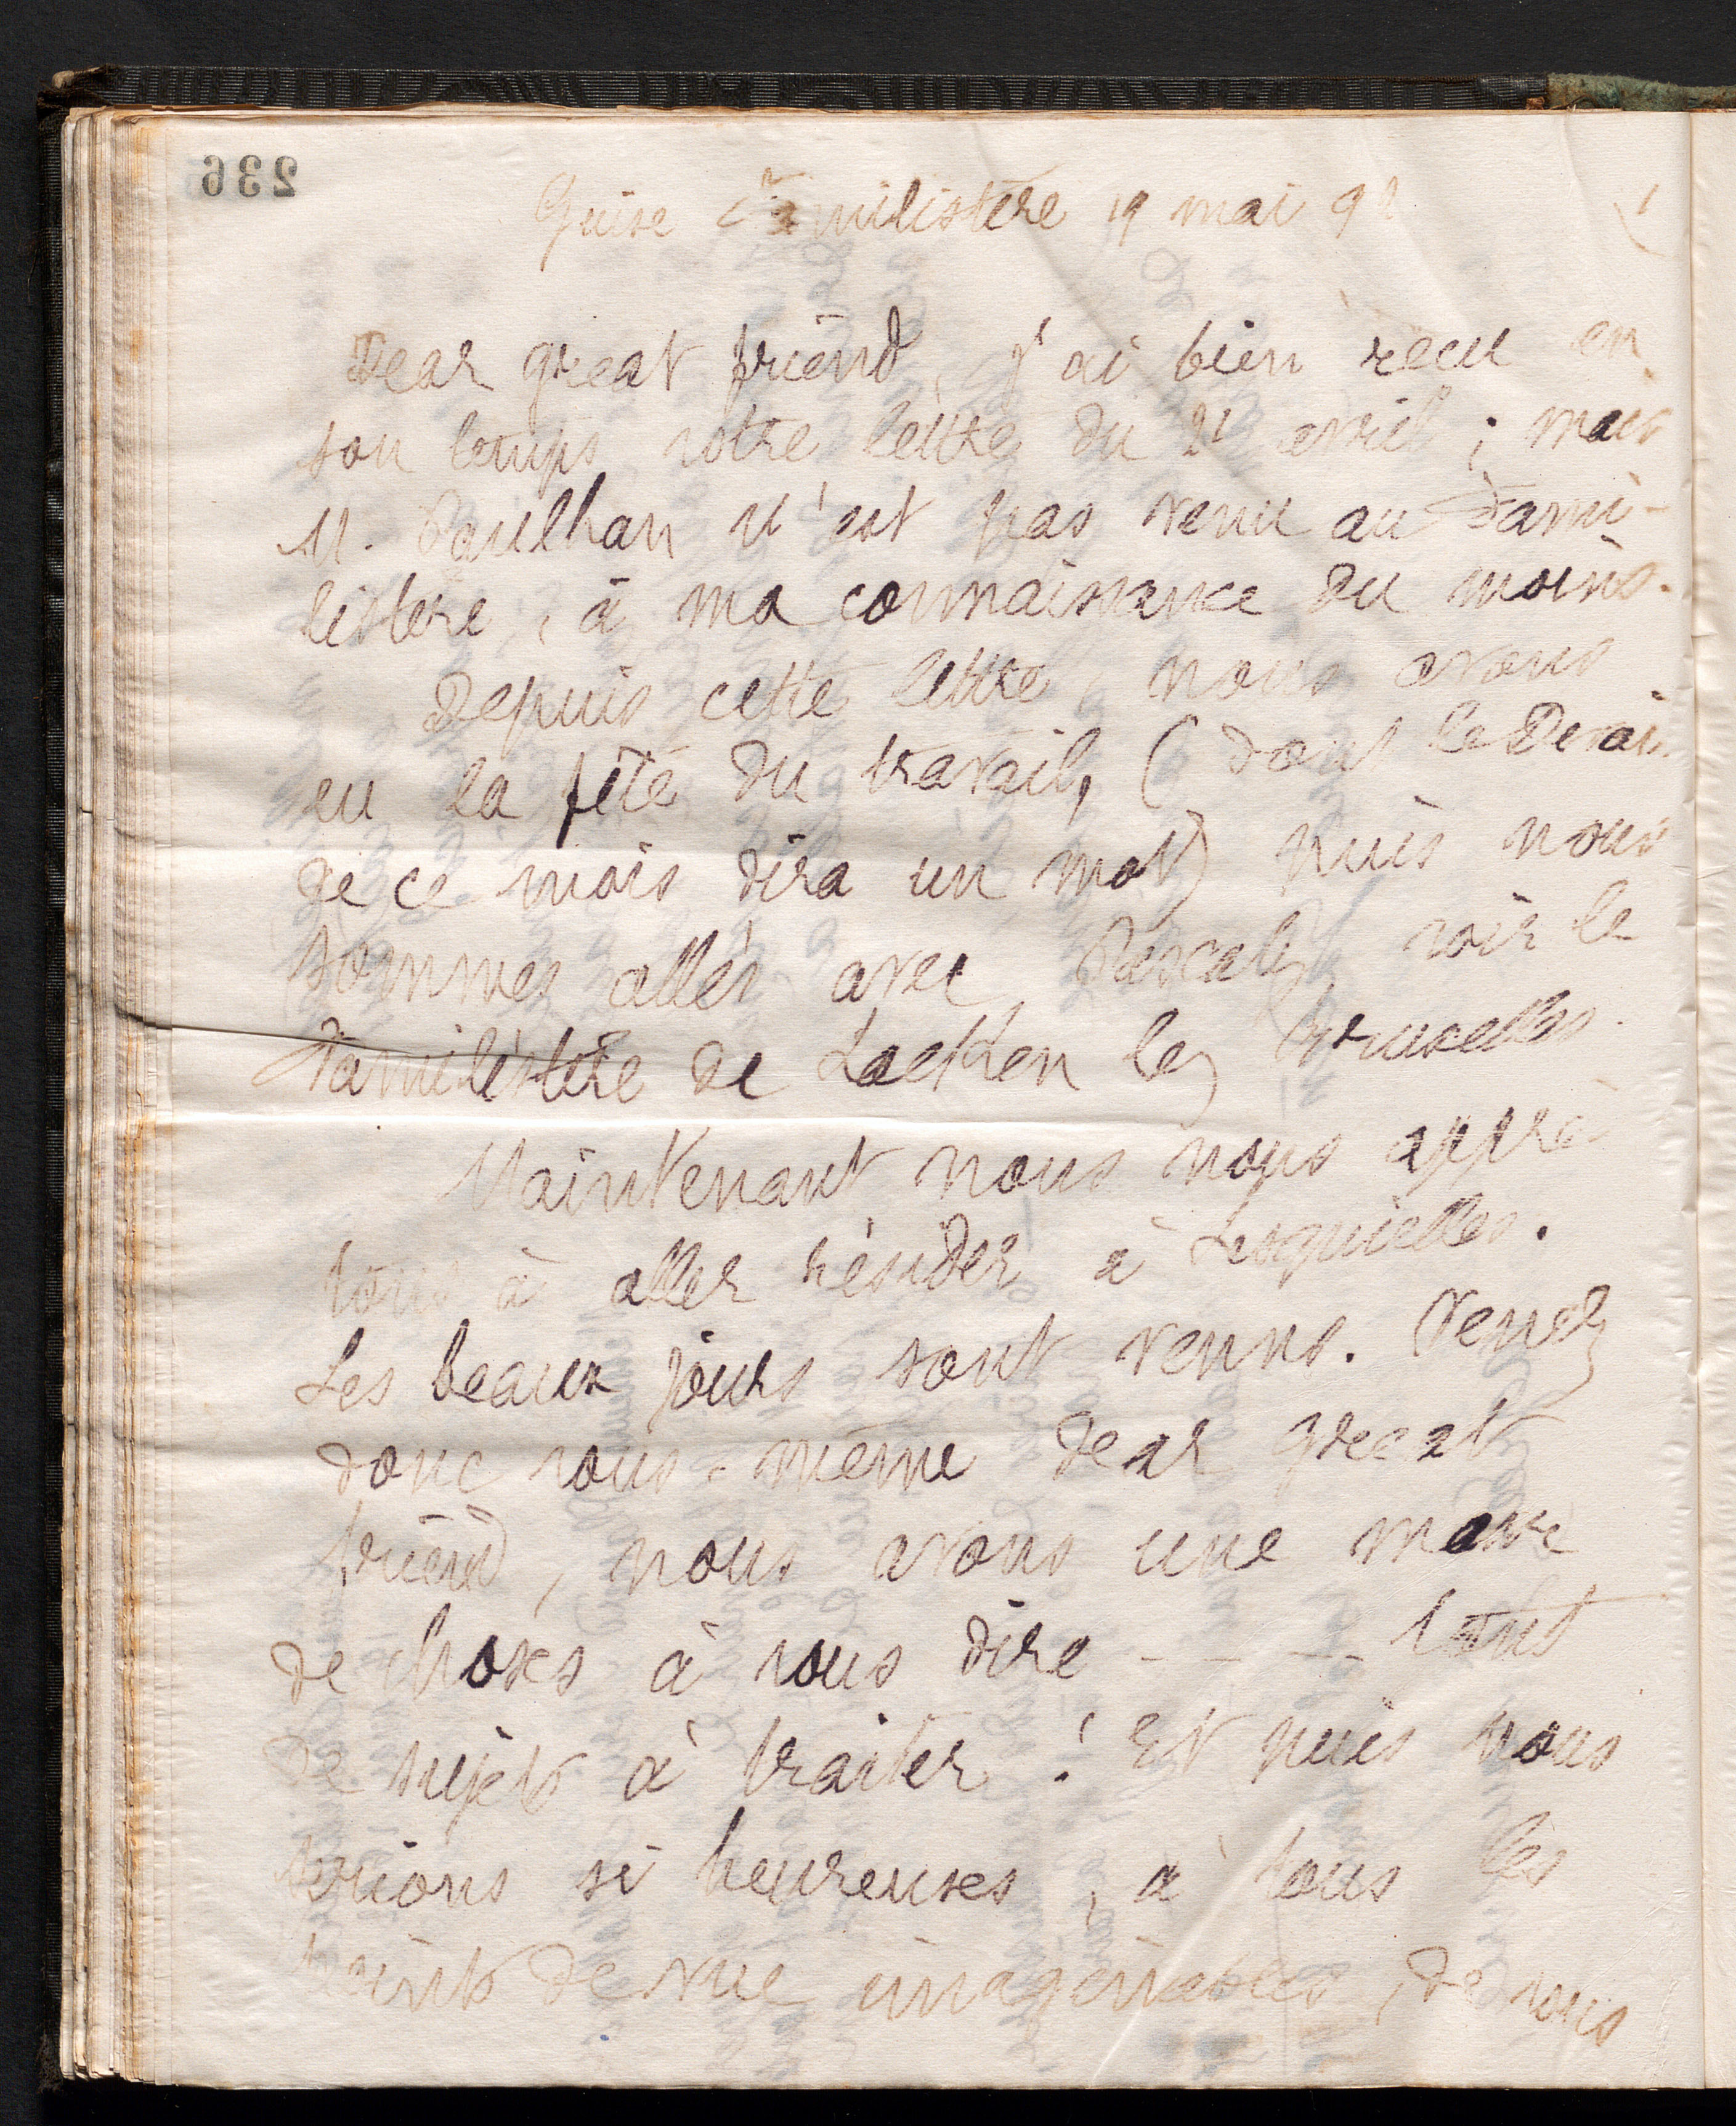 236
Guise Familistère 19 mai 92
1
Dear great friend, j'ai bien reçu en
son temps votre lettre du 21 avril ; mais
M. Paulhan n'est pas venu au Fami-
listère, à ma connaissance du moins.
Depuis cette lettre, nous avons
eu la fête du travail, (dont le Devoir
de ce mois dira un mot) puis nous
sommes allés avec Pascaly voir le
Familistère de Laeken lez Bruxelles.
Maintenant nous nous apprê-
tons à aller résider à Lesquielles.
Les beaux jours sont venus. Venez
donc vous-même dear great
friend, nous avons une masse
de choses à vous dire - - - - tant
de sujets à traiter ! Et puis nous
serions si heureuses, à tous les
points de vue imaginables, de vous